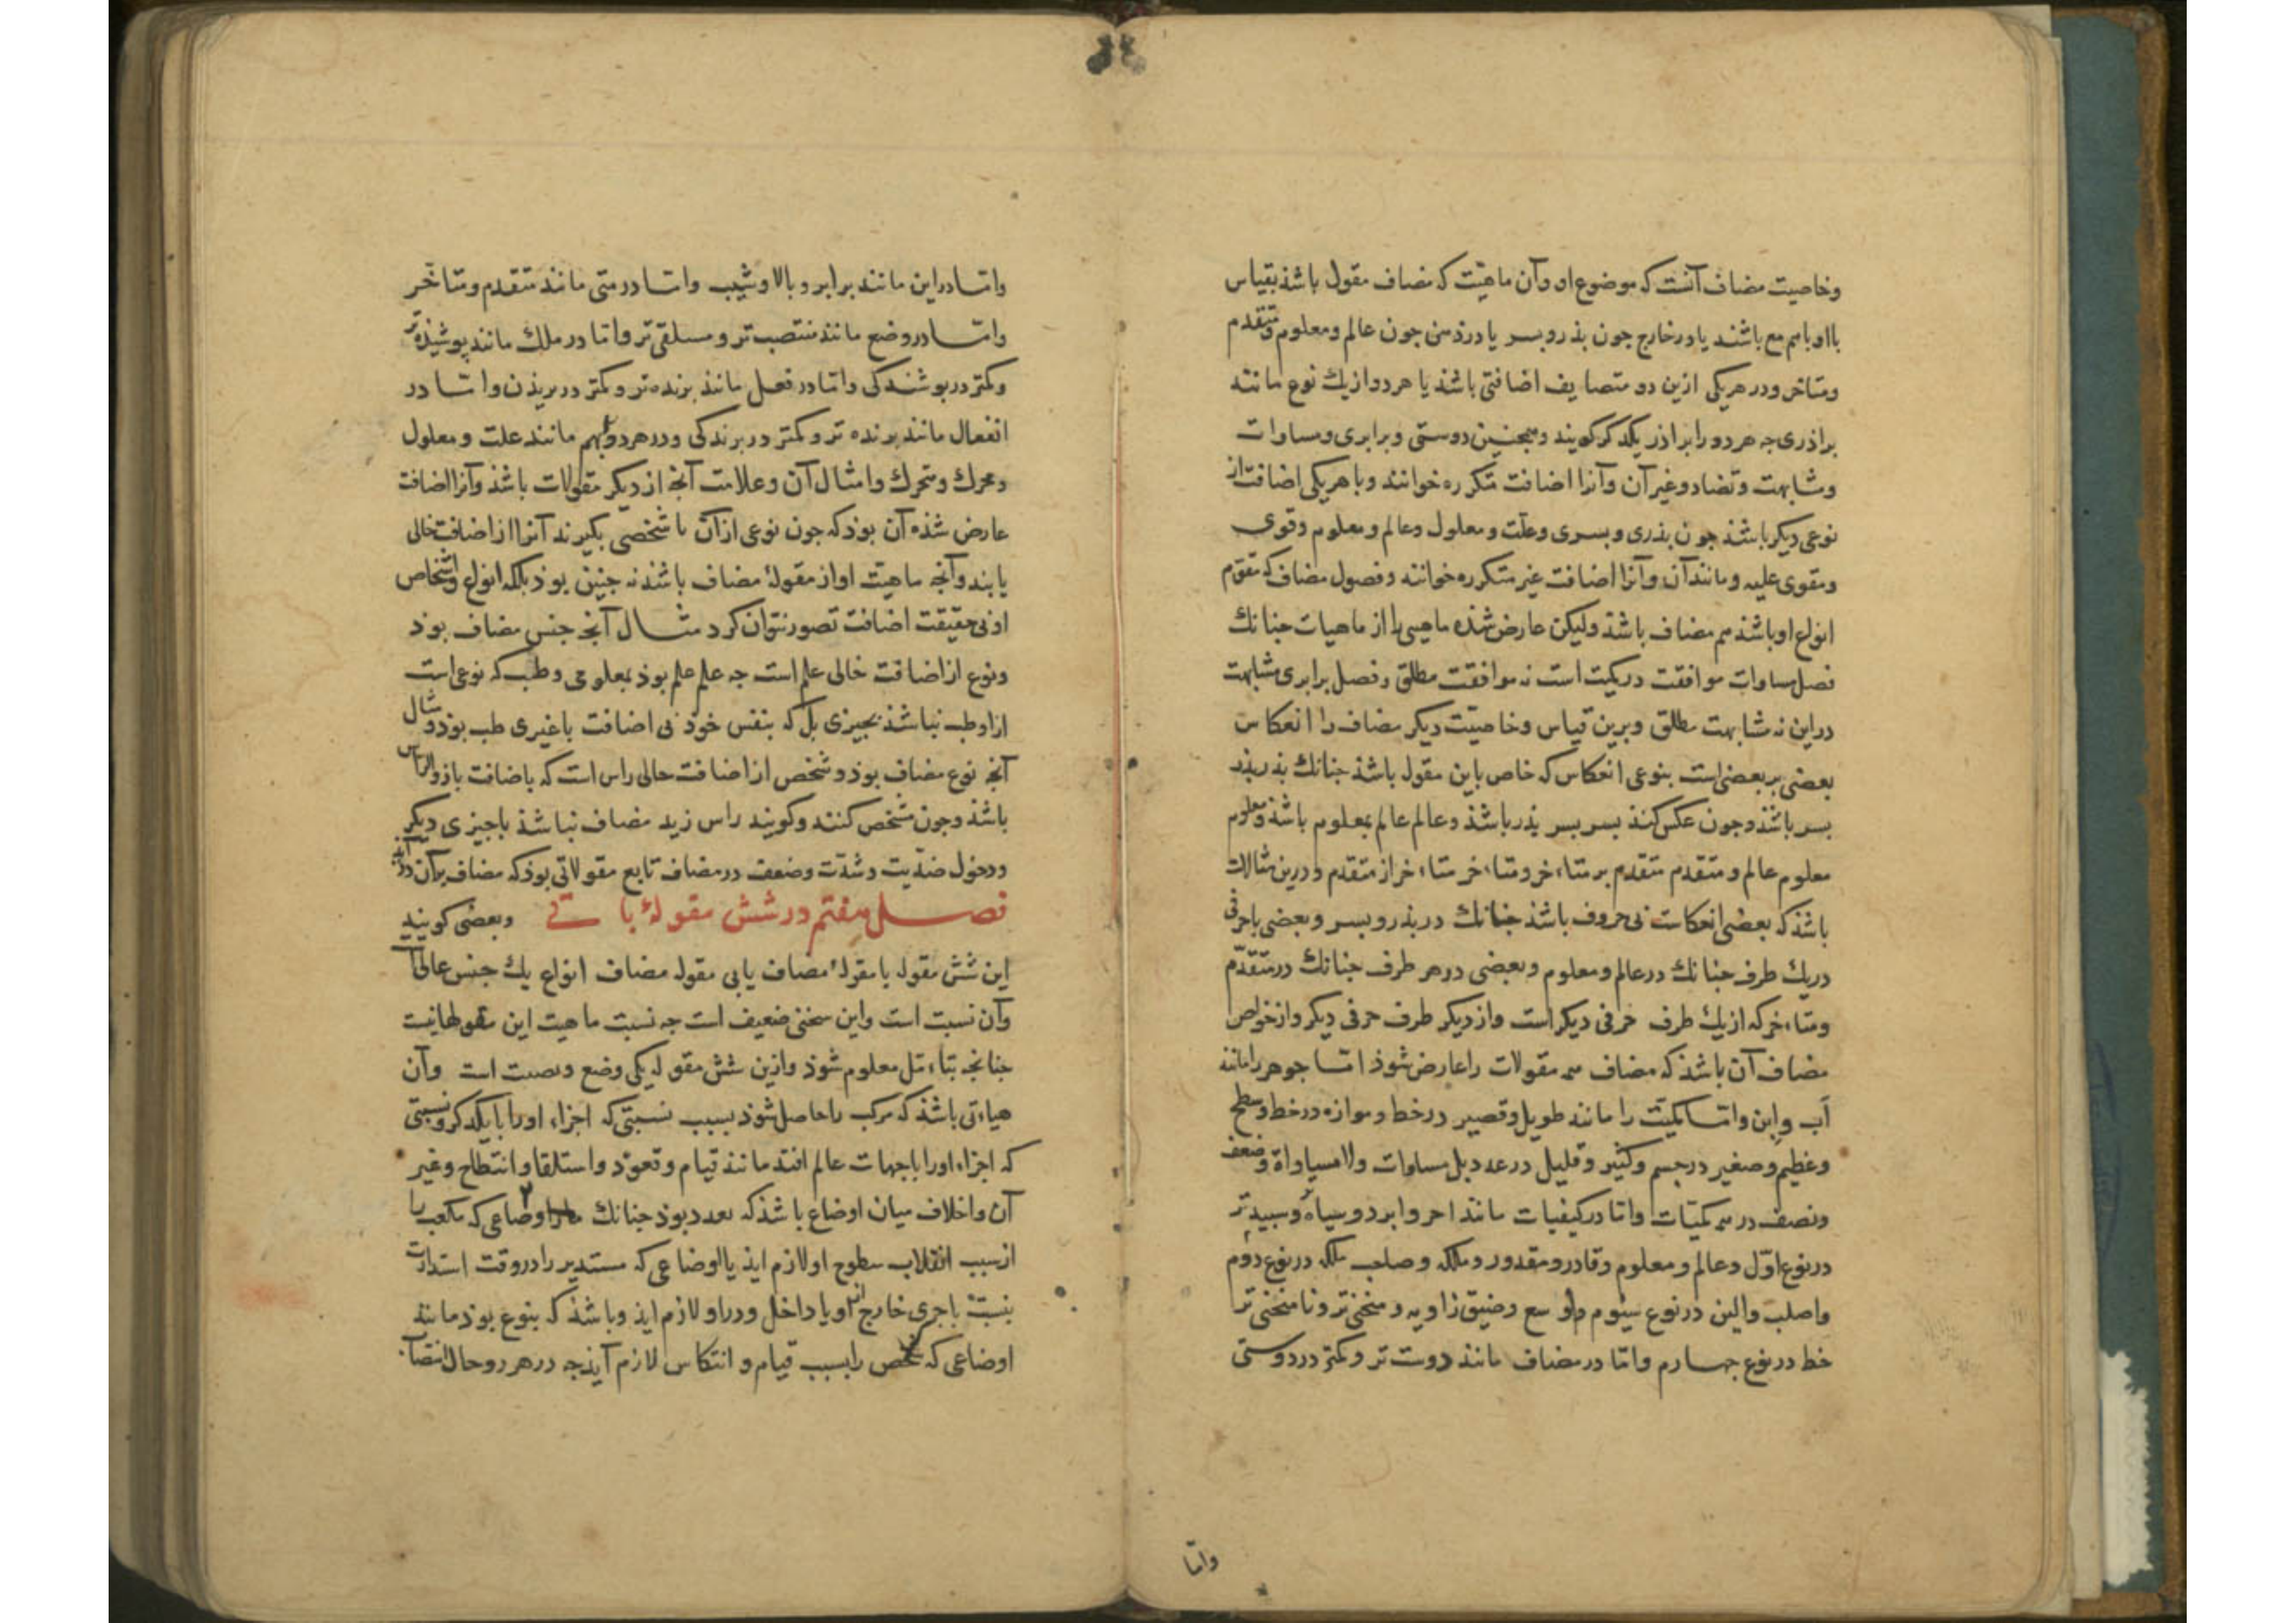 وخاصیت مضاف آنست که موضوع او وآن ماهیت که مضاف مقول باشذ بقیاس
بااو باهم مع باشند یا در خارج جون بذر وبسر یا در ذهن جون عالم ومعلوم ومتقدم
ومتاخر ودر هر یکی ازین دو متضایف اضافتی باشذ یا هر دو از یك نوع مانند
براذری جه هر دو را براذر یکدکر کویند وهمجنین دوستی وبرابری ومساوات
ومشابهت وتضاد وغیر آن وآنرا اضافت متکرره خوانند وبا هر یکی اضافت از
نوعی دیکر باشذ جون بذری وبسری وعلت ومعلول وعالم ومعلوم وقوی
ومقوی علیه ومانند آن وآنرا اضافت غیر متکرره خوانند وفصول مضاف که مقوم
انواع او باشذ هم مضاف باشذ ولیکن عارض شذه ماهیتی را از ماهیات جنانك
فصل مساوات موافقت در کمیت است نه موافقت مطلق وفصل برابری مشابهت
در این نه مشابهت مطلق وبرین قیاس وخاصیت دیکر مضاف را انعکاس
بعضی بر بعضی است بنوعی انعکاس که خاص باین مقول باشذ جنانك بذر بذر
بسر باشذ وجون عکس کنند بسر بسر بذر باشذ وعالم عالم بمعلوم باشذ ومعلوم
معلوم عالم ومتقدم متقدم بر متاءخر ومتاءخر متاءخر از متقدم ودرین مثالات
باشذ که بعضی انعکاسات بی حروف باشذ جنانك در بذر وبسر وبعضی باحرفی
در یك طرف جنانك در عالم ومعلوم وبعضی در هر طرف جنانك در متقدم
ومتاءخر که از یك طرف حرفی دیکر است واز دیکر طرف حرفی دیکر واز خواص
مضاف آن باشذ که مضاف همه مقولات را عارض شوذ اما جوهر را مانند
آب وابن واما کمیت را مانند طویل وقصیر در خط وموازه در خط وسطح
وعظیم وصغیر در جسم وکثیر وقلیل در عدد بل مساوات ولا مساواة وضعف
ونصف در همه کمیات واما در کیفیات مانند احر وابرد وسیاه وسبیدتر
در نوع اول وعالم ومعلوم وقادر ومقدور وملکه وصاحب ملکه در نوع دوم
واصلب والین در نوع سیوم واوسع وضیق زاویه ومنحنی تر ونامنحنی تر
خط در نوع جهارم واما در مضاف مانند دوست تر وکمتر در دوستی
واما
واما در این مانند برابر وبالا وشیب واما در متی مانند متقدم ومتاخر
واما در وضع مانند منتصب تر ومستلقی تر واما در ملك مانند پوشیذه تر
وکمتر در بوشندکی واما در فعل مانند برنده تر وکمتر در بریذن واما در
انفعال مانند برنده تر وکمتر در برندکی ودر هر دو بهم مانند علت ومعلول
ومحرك ومتحرك وامثال آن وعلامت آنجه از دیکر مقولات باشذ وآنرا اضافت
عارض شذه آن بوذ که جون نوعی از آن یا شخصی بکیرند آنرا از اضافت خالی
یابند وآنجه ماهیت او از مقولهٔ مضاف باشذ نه جنین بوذ بلکه انواع واشخاص
او بی حقیقت اضافت تصور نتوان کرد مثال آنجه جنس مضاف بوذ
ونوع از اضافت خالی علم است جه علم علم بوذ بمعلومی وطب که نوعی است
از او طب نباشذ بجیزی بل که بنفس خوذ بی اضافت باغیری طب بوذ ومثال
آنجه نوع مضاف بوذ وشخص از اضافت خالی راس است که باضافت باذو الراس
باشذ وجون مشخص کنند وکویند راس زید مضاف نباشذ باجیزی دیکر
ودخول ضدیت وشدت وضعف در مضاف تابع مقولاتی بوذ که مضاف بر آن درآید
فصل هفتم در شش مقولهٔ باقی وبعضی کویند
این شش مقوله با مقولهٔ مضاف یا بی مقوله مضاف انواع یك جنس عالی است
وآن نسبت است واین سخنی ضعیف است جه نسبت ماهیت این مقولها نیست
جنانجه بتاءمل معلوم شوذ وازین شش مقوله یکی وضع ونصبت است وآن
هیاءتی باشذ که مرکب را حاصل شوذ بسبب نسبتی که اجزاء اورا بایکدکر ونسبتی
که اجزاء اورا باجهات عالم افتد مانند قیام وقعود واستلقا وانبطاح وغیر
آن واختلاف میان اوضاع باشذ که بعدد بوذ جنانك اوضاعی که مکعب را
از سبب انقلاب سطوح او لازم ایذ یا اوضاعی که مستدیر را در وقت استدارت
بنسبت باجزی خارج از او یا داخل ودر او لازم ایذ وباشذ که بنوع بوذ مانند
اوضاعی که شخص را بسبب قیام وانتکاس لازم آیذ جه در هر دو حال انتصاب